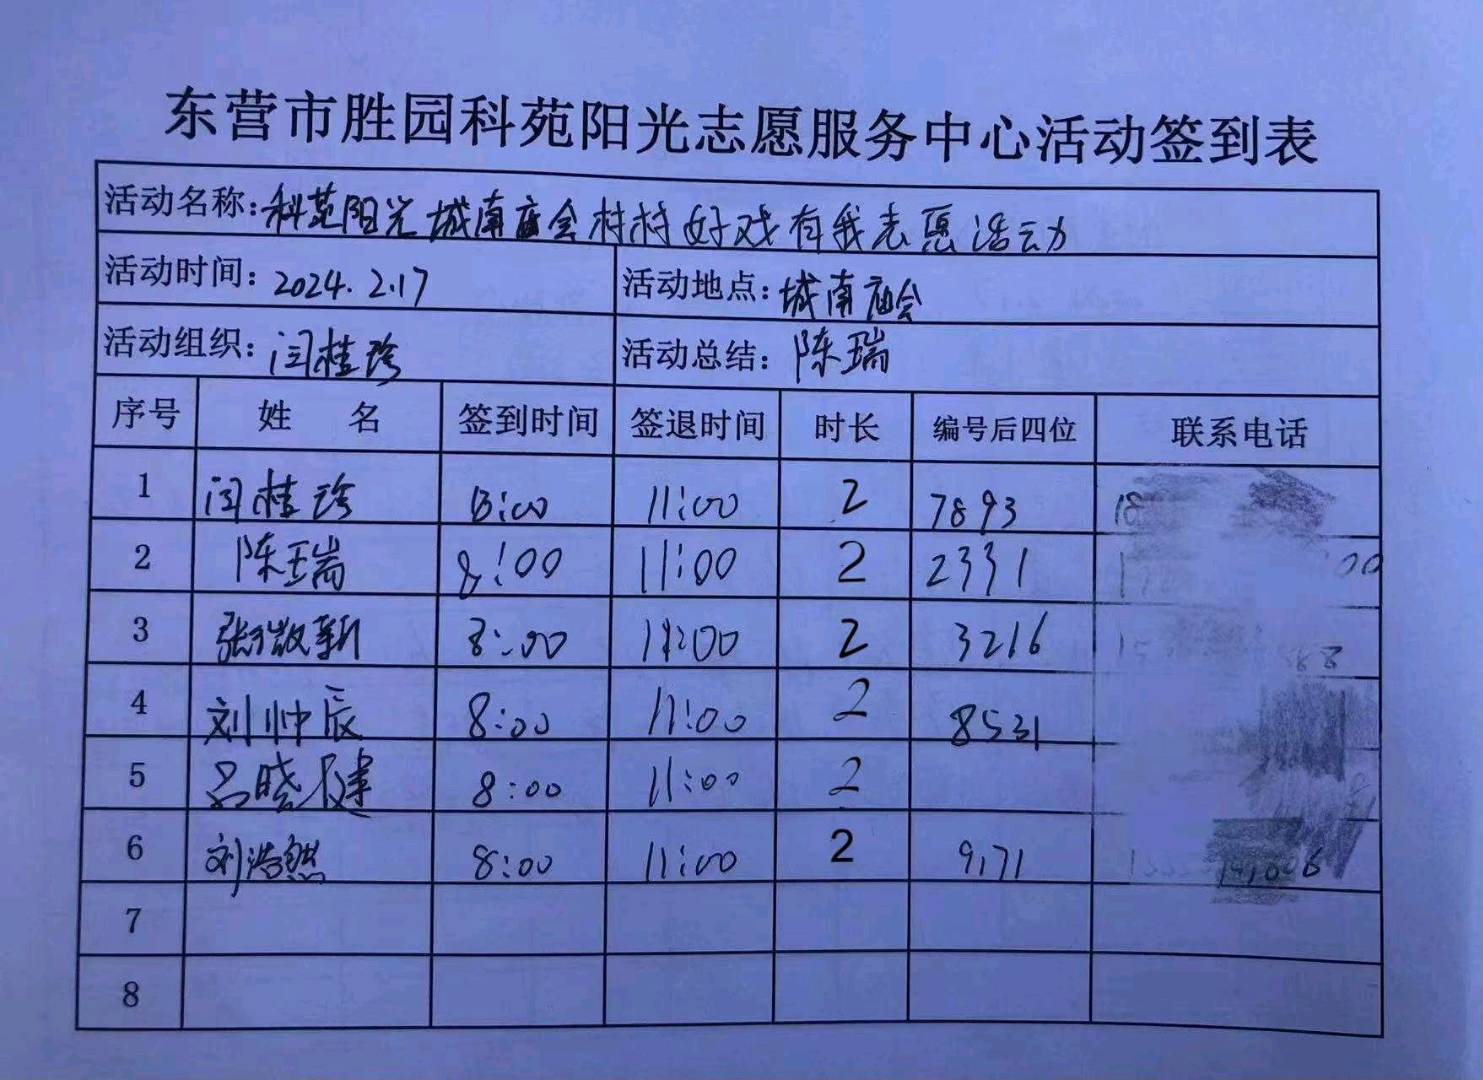 东营市胜园科苑阳光志愿服务中心活动签到表
活动名称:科苑阳光城南庙会村村好戏有我志愿活动
活动时间:2024.2.17 活动地点:城南庙会
活动组织:闫桂珍 活动总结:陈瑞
序号 姓名 签到时间 签退时间 时长 编号后四位 联系电话
1 闫桂珍 8:00 11:00 2 7893 18
2 陈瑞 8:00 11:00 2 2331 00
3 张新 8:00 11:00 2 3216 88
4 刘帅辰 8:00 11:00 2 8531
5 吕晓健 8:00 11:00 2
6 刘浩然 8:00 11:00 2 9171
7
8